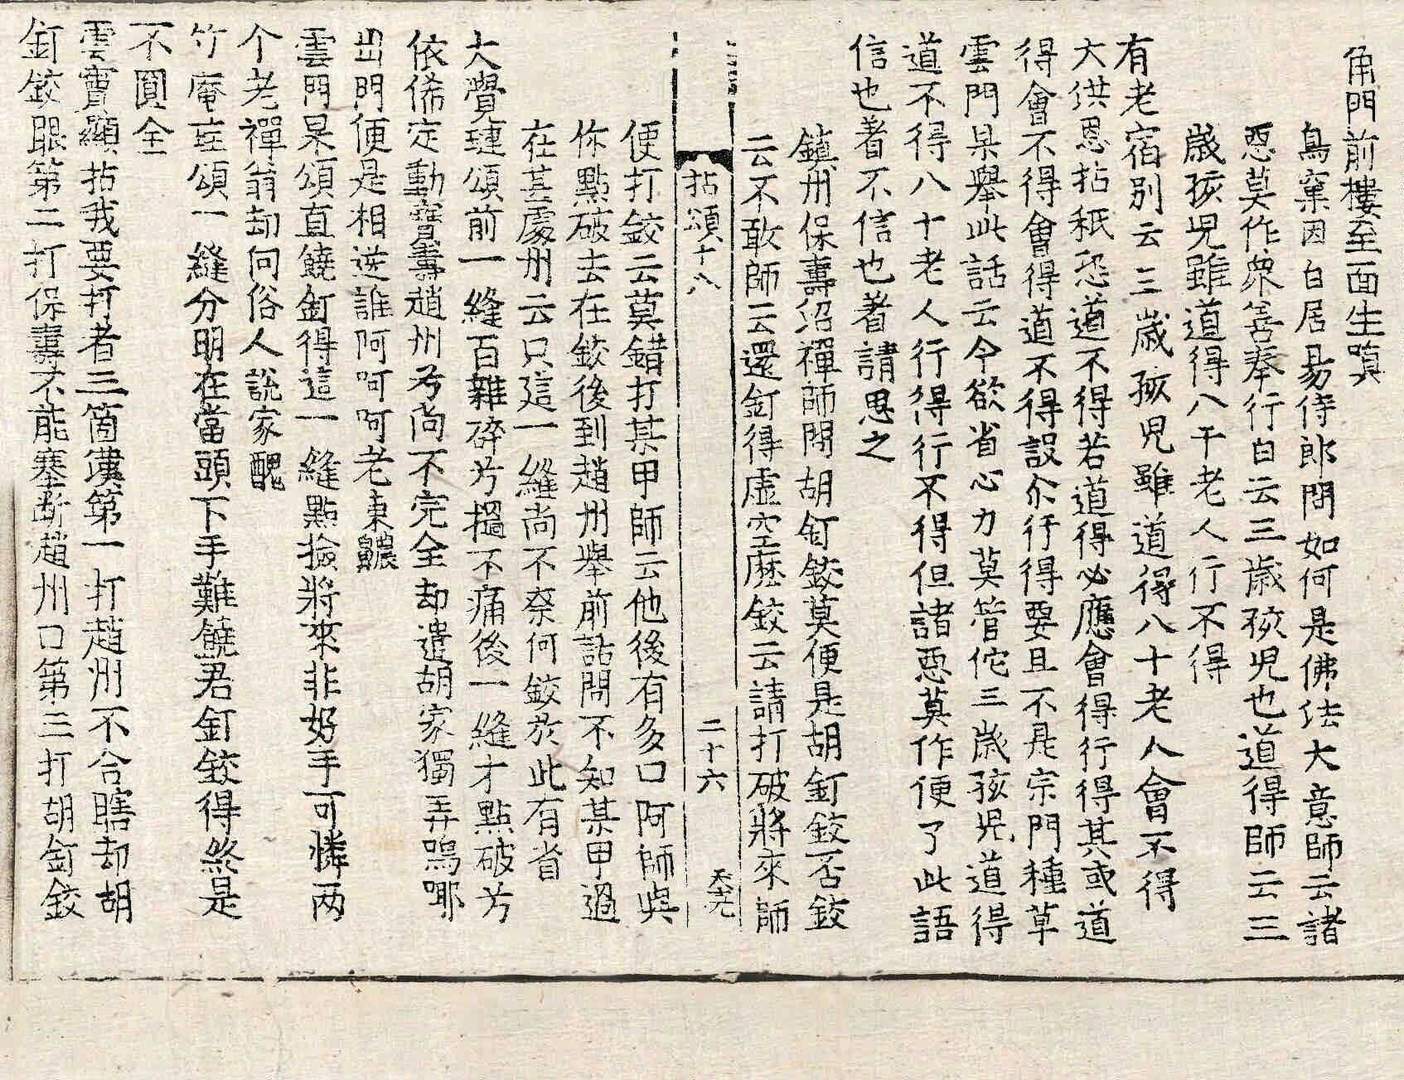 角門前樓至面生嗔
鳥窠因白居易侍郎問如何是佛法大意師云諸
惡莫作衆善奉行白云三歲孩児也道得師云三
歲孩児雖道得八十老人行不得
有老宿別云三歲孩児雖道得八十老人會不得
大洪恩拈秖恐道不得若道得必應會得行得其或道
得會不得會得道不得設尒行得要且不是宗門種草
雲門杲舉此話云今欲省心力莫管佗三歲孩児道得
道不得八十老人行得行不得但諸惡莫作便了此語
信也著不信也著請思之
鎮州保壽沼禪師問胡釘鉸莫便是胡釘鉸否鉸
云不敢師云還釘得虛空麽鉸云請打破將來師
拈頌十八 二十六
便打鉸云莫錯打某甲師云他後有多口阿師與
你點破去在鉸後到趙州舉前話問不知某甲過
在甚處州云只這一縫尚不柰何鉸於此有省
大覺璉頌前一縫百雜碎兮搵不痛後一縫才點破兮
依俙定動寶壽趙州兮尚不完全却遣胡家獨弄嗚㖿
出門便是相逆誰阿呵呵老凍齈
雲門杲頌直饒釘得這一縫點撿將來非好手可憐兩
个老禪翁却向俗人說家醜
竹庵珪頌一縫分明在當頭下手難饒君釘鉸得終是
不圓全
雲竇顯拈我要打者三箇漢第一打趙州不合瞎却胡
釘鉸眼第二打保壽不能塞断趙州口第三打胡釘鉸